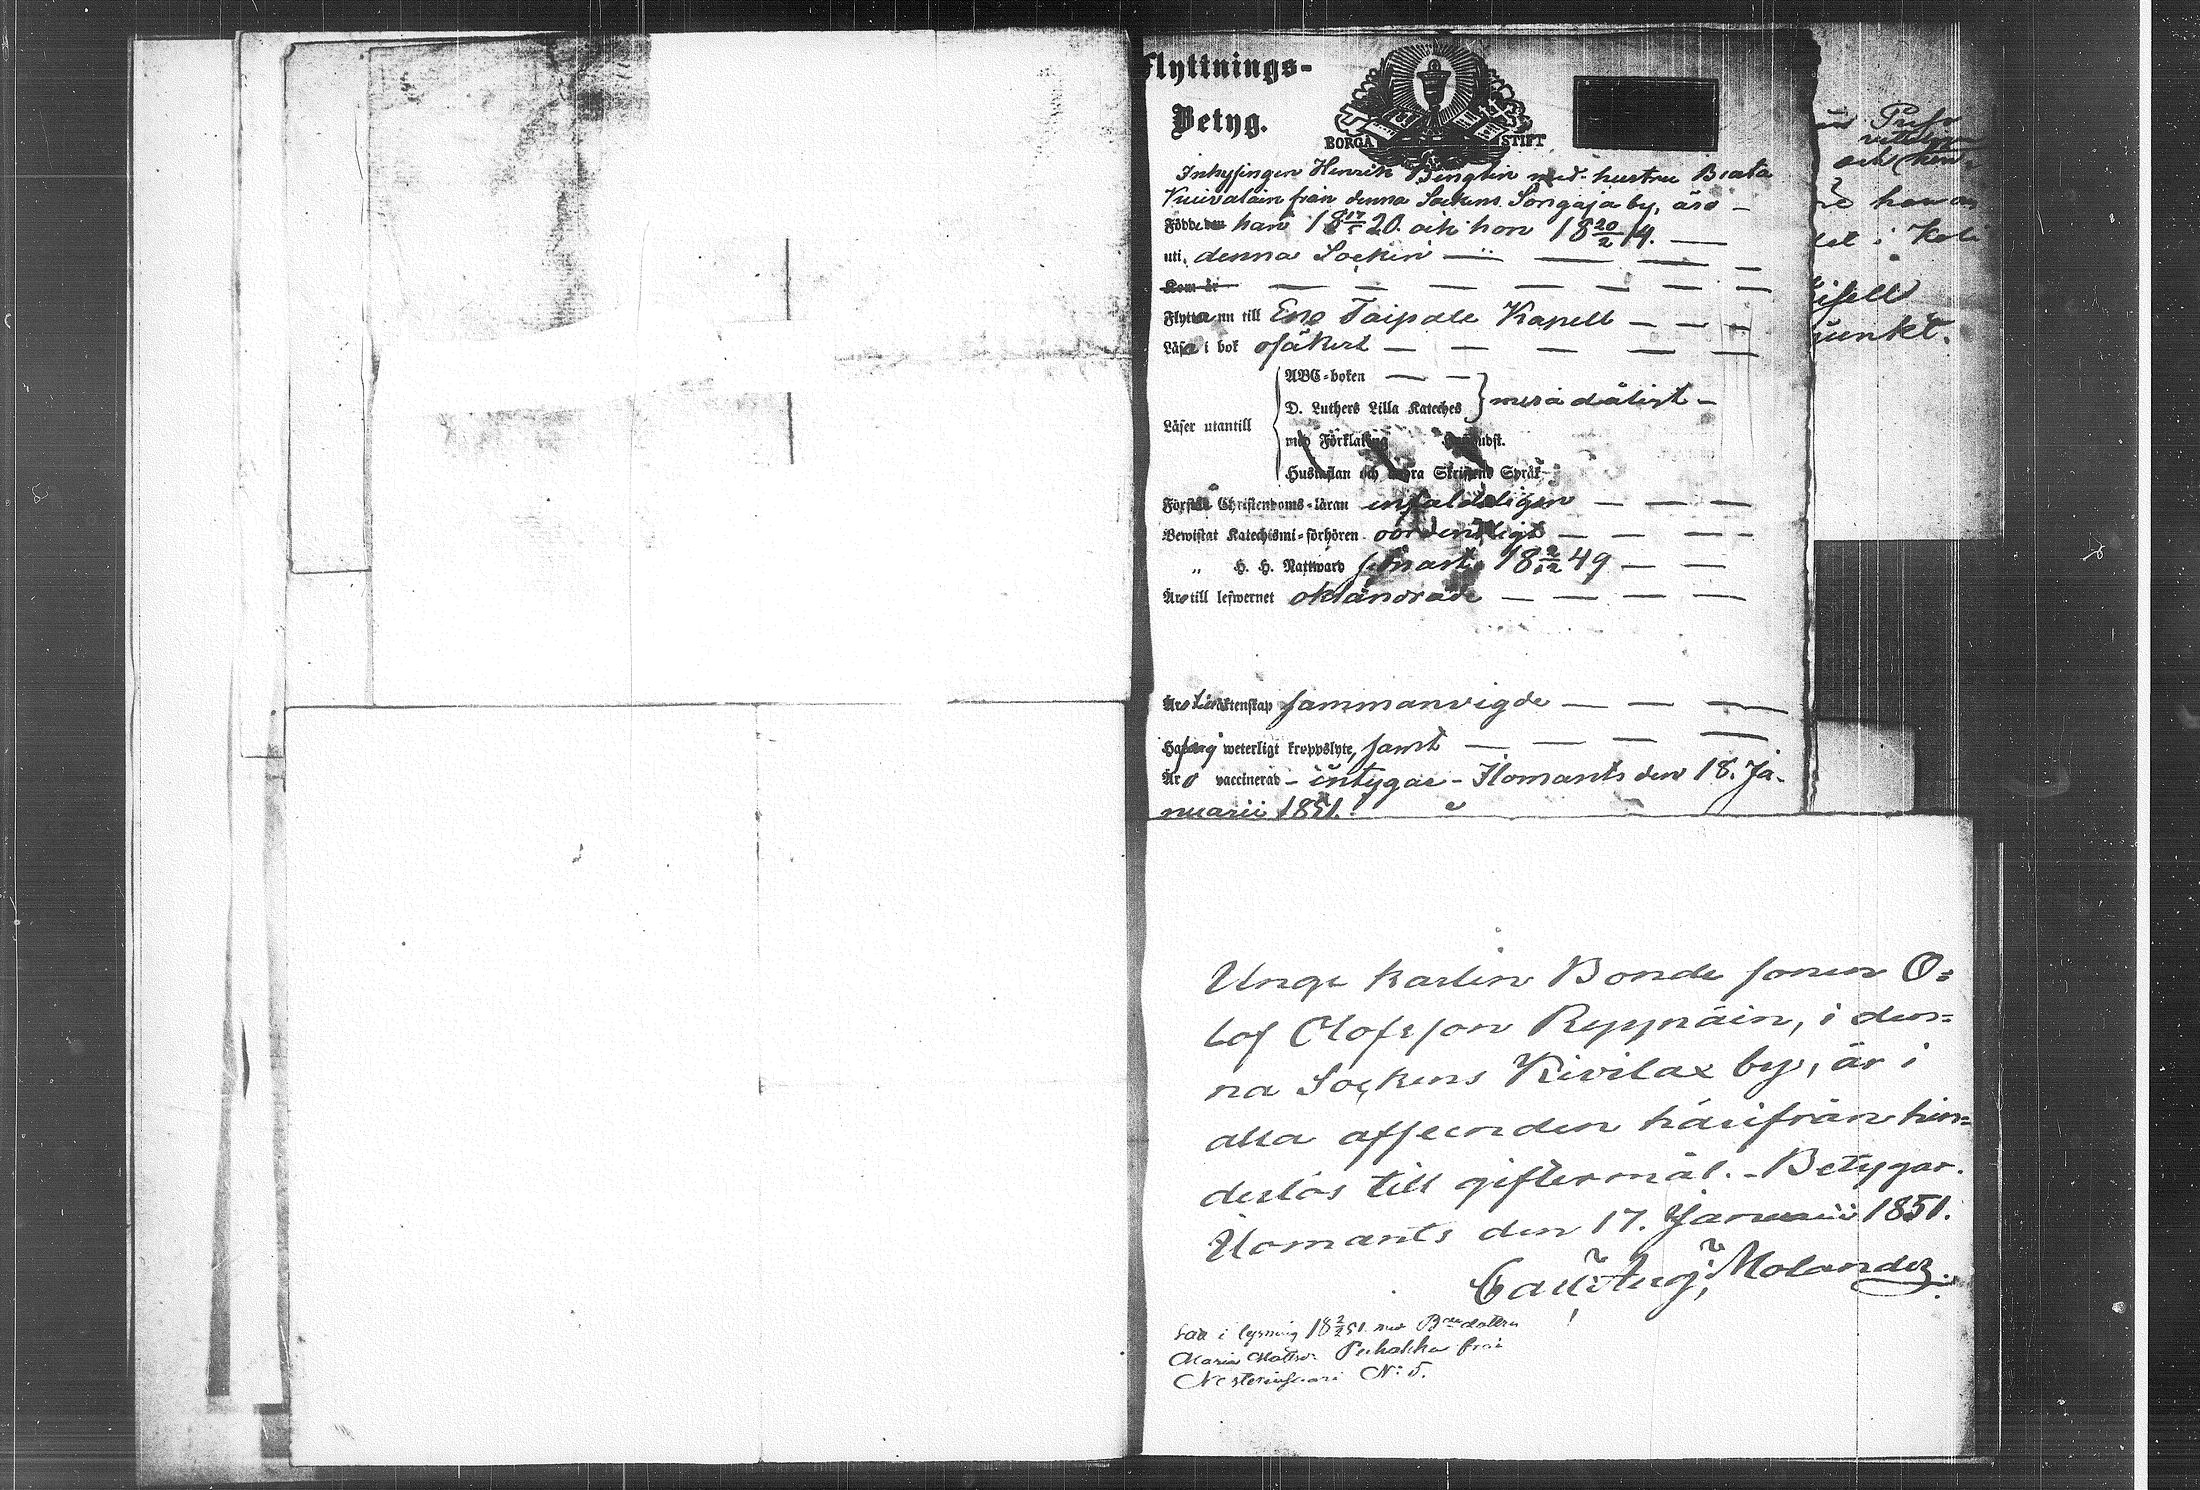 Flyttnings-
Betyg.
BORGÅ STIFT
Inhysingen Henrik Bengtin med hustru Beata
Kuivalain från denna Sockens Songaja by, äro —
Födde den han 18 17/5 20. och hon 18 20/2 14. —
uti denna Sockin — — — —
Kom år — — — — — — —
Flyttar nu till Eno Taipale Kapell — — —
Läser i bok osäkert — — — — —
ABC-boken — —
D. Luthers Lilla Kateches } mera dåligt —
Läser utantill
med Förklaring
Hustaflan och Skriftens Språk
Förstår Christendoms-läran enfaldeligen — — —
Bewistat Katechismi-förhören oordentligt — — — —
„ H. H. Nattward senast 18 2/12 49 — —
Äro till lefwernet oklandrade — — — —
Äro äktenskap sammanvigde — — —
Hafva ej weterligt kroppslyte, samt — — — —
Äro vaccinerad — intygar — Ilomants den 18. Ja-
nuarii 1851.
och
han
i
junkt.
Unge karlen Bonde sonen O=
lof Olofsson Ryynäin, i den=
na Sockens Kivilax by, är i
alla afseenden härifrån hin=
derlös till giftermål. - Betygar.
Ilomants den 17. Januarii 1851.
Carl Aug: Molander.
i lysning 18 2/2 51. med B dottern
Maria Mattsd: Pehakka från
N: 5.